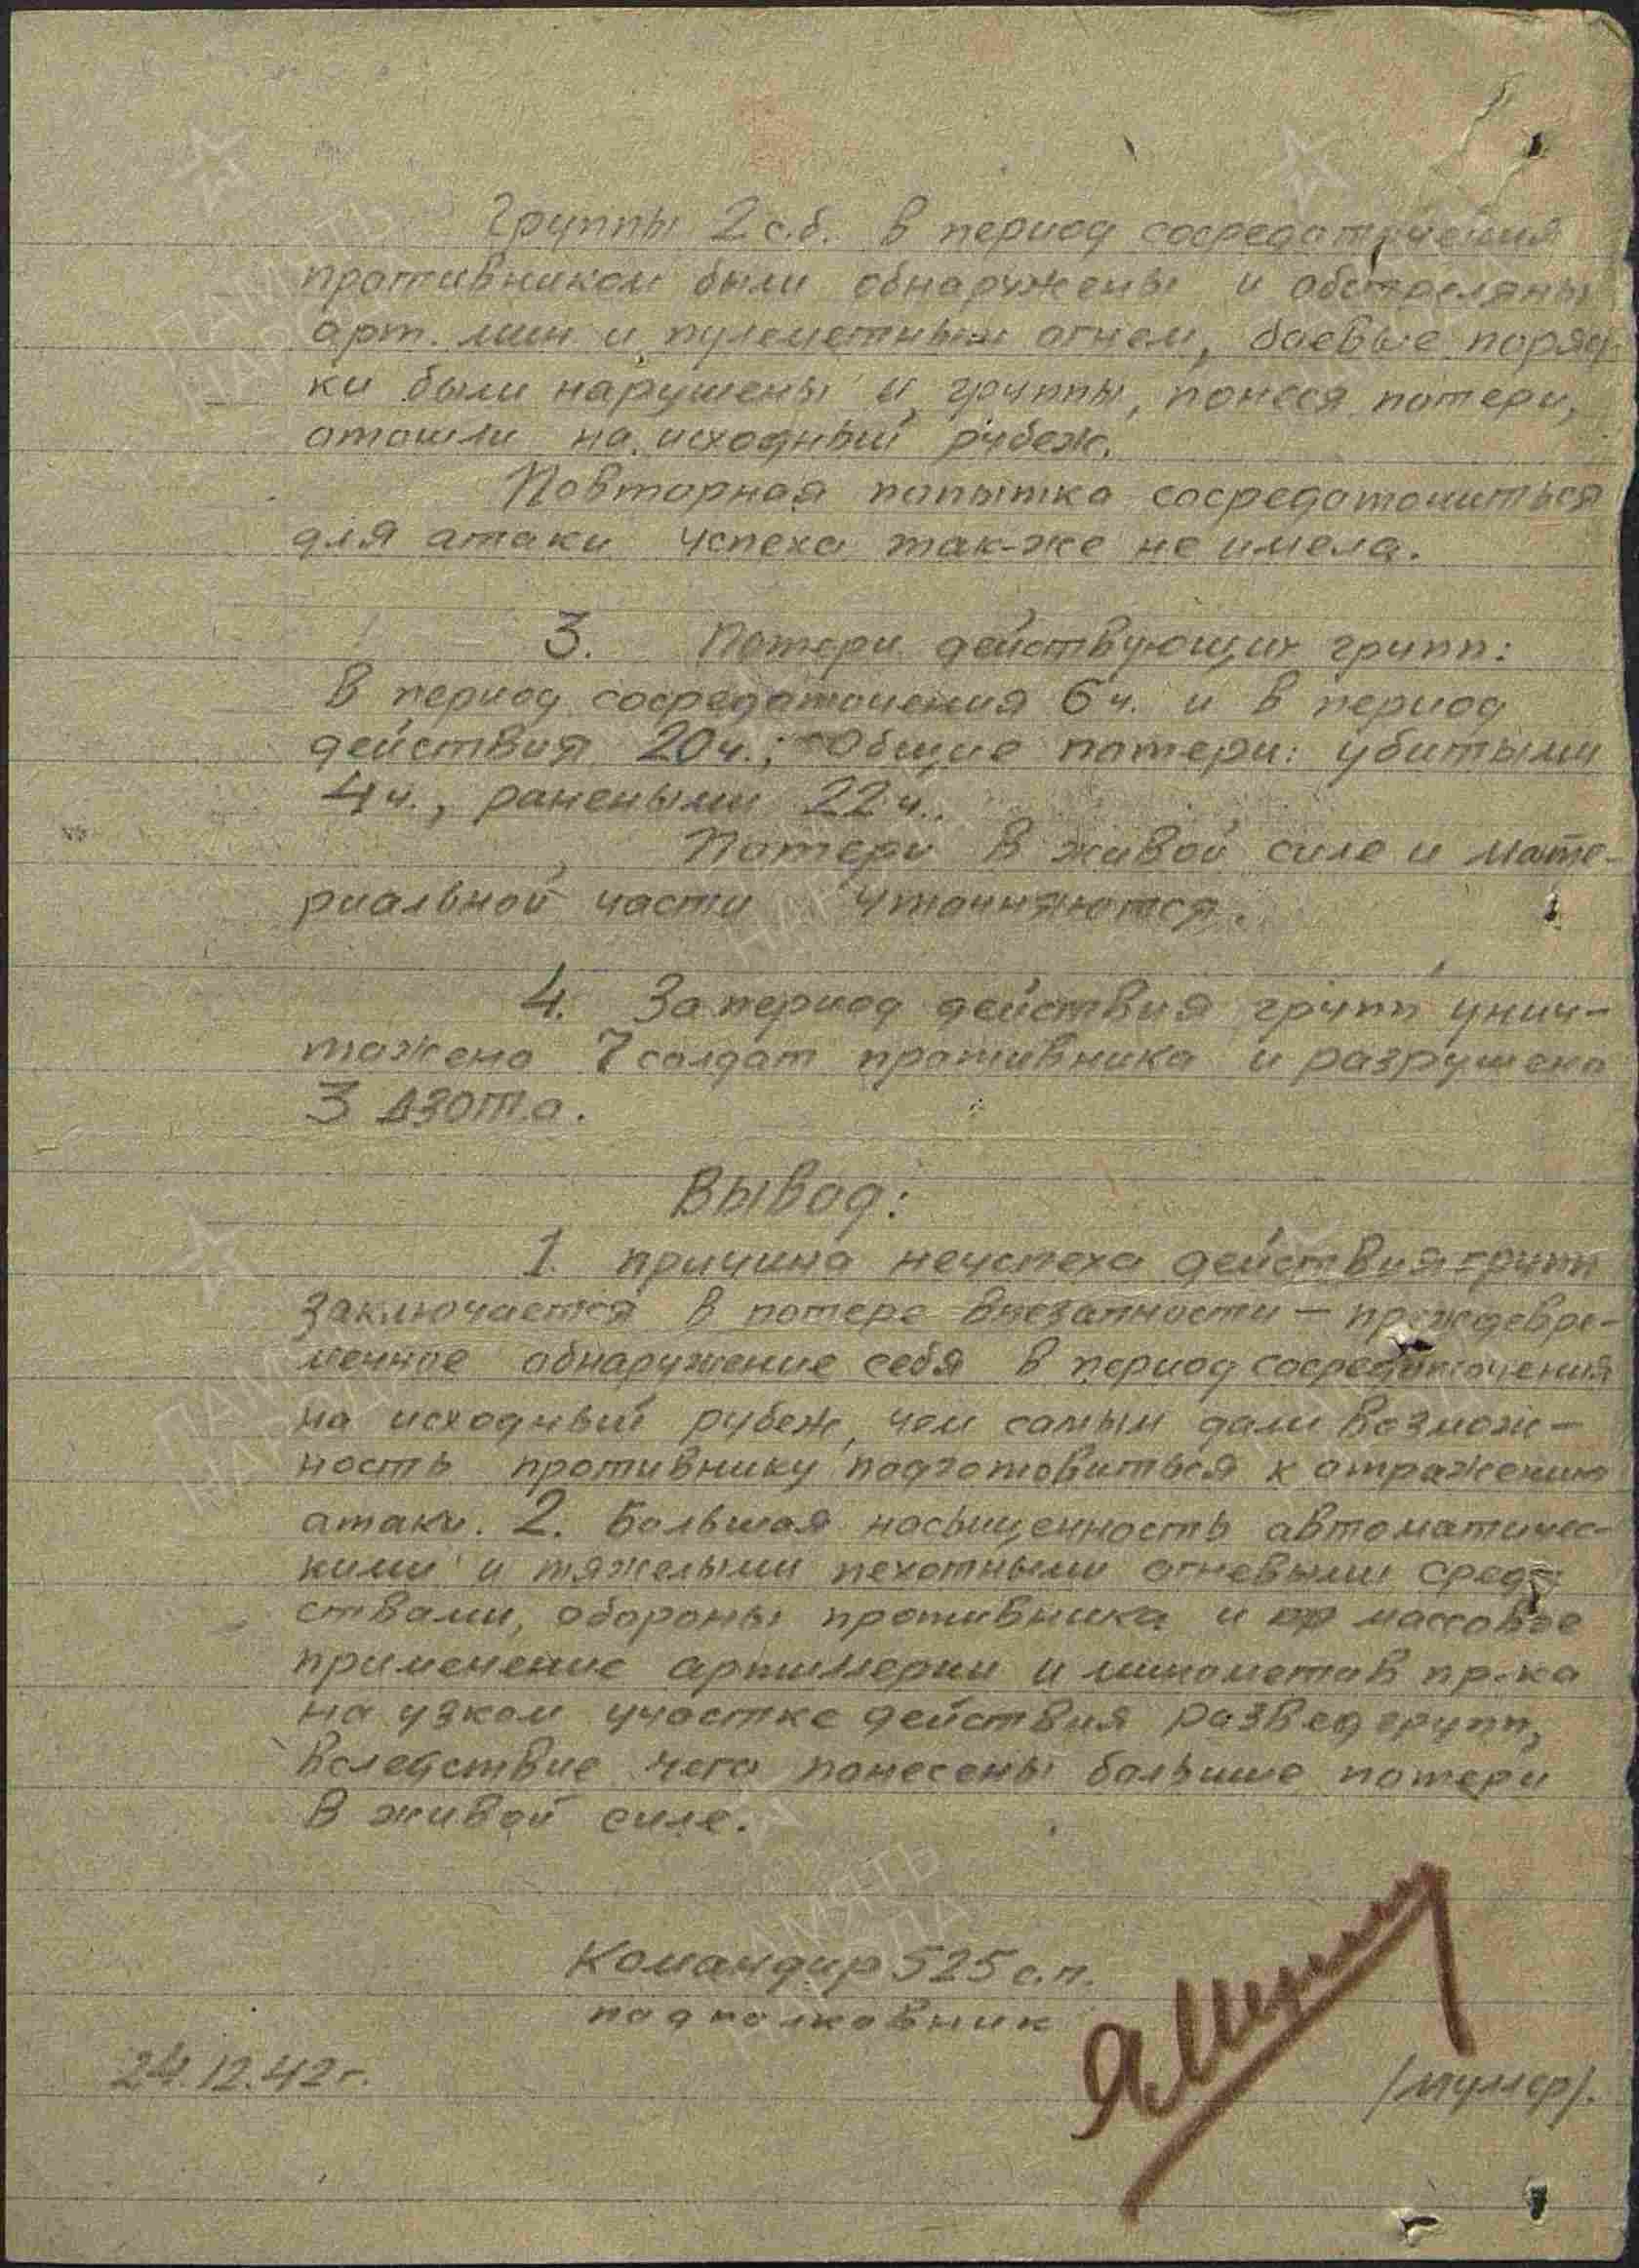 Группы 2 с.б. в период сосредоточения
противником были обнаружены и обстреляны
арт. мин. и пулеметным огнем, боевые поряд-
ки были нарушены и группы, понеся потери,
отошли на исходный рубеж.
Повторная попытка сосредоточиться
для атаки успеха так-же не имела.
3. Потери действующих групп:
В период сосредоточения 6 ч. и в период
действия 20 ч.; Общие потери: убитыми
4 ч., ранеными 22 ч..
Потери в живой силе и мате-
риальной части уточняются.
4. За период действия групп унич-
тожено 7 солдат противника и разрушено
3 ДЗОТа.
Вывод:
1. причина неуспеха действия групп
заключается в потере внезапности — преждевре-
менное обнаружение себя в период сосредоточения
на исходный рубеж, чем самым дали возмож-
ность противнику подготовиться к отражению
атаки. 2. Большая насыщенность автоматичес-
кими и тяжелыми пехотными огневыми сред-
ствами, обороны противника и массовое
применение артиллерии и минометов пр-ка
на узком участке действия развед групп,
вследствие чего понесены большие потери
в живой силе.
Командир 525 с.п.
подполковник
24.12.42 г.
/муллер/.
ПАМЯТЬ
НАРОДА